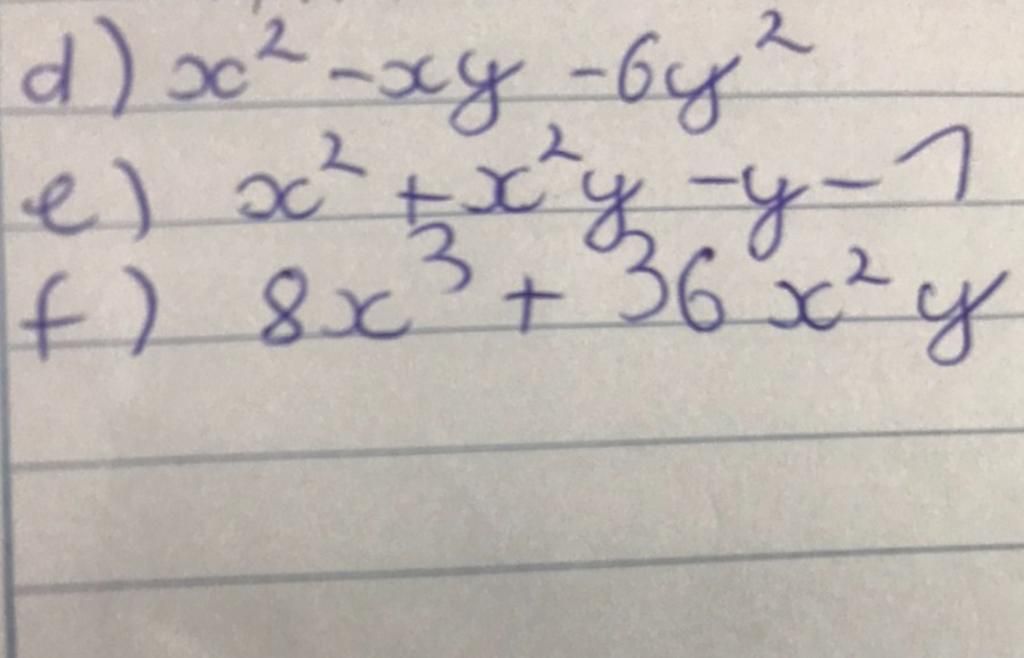 d) x² - xy - 6y²
e) x² + x²y - y - 1
f) 8x³ + 36x²y